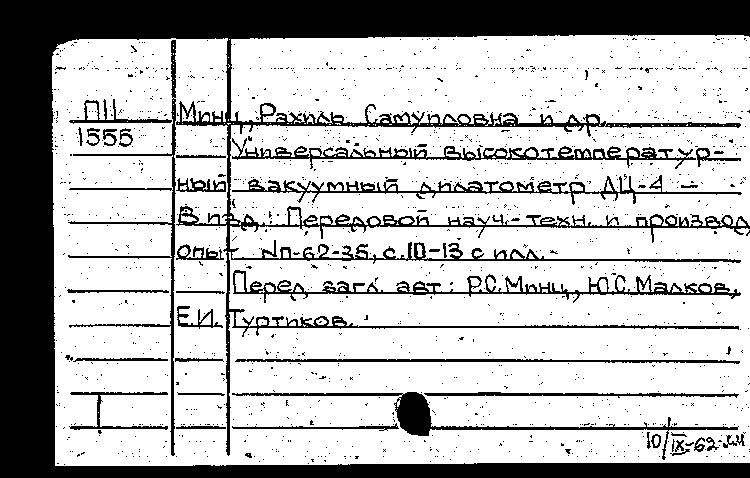 П11
1555
Минц, Рахиль Самуиловна и др.
Универсальный высокотемператур-
ный вакуумный дилатометр ДЦ-4 —
В изд.: Передовой науч.-техн. и производ.
опыт №п-62-35, с.10-13 с илл.
Перед загл. авт: Р.С.Минц, Ю.С.Малков,
Е.И. Туртиков.
1
10/IX-62